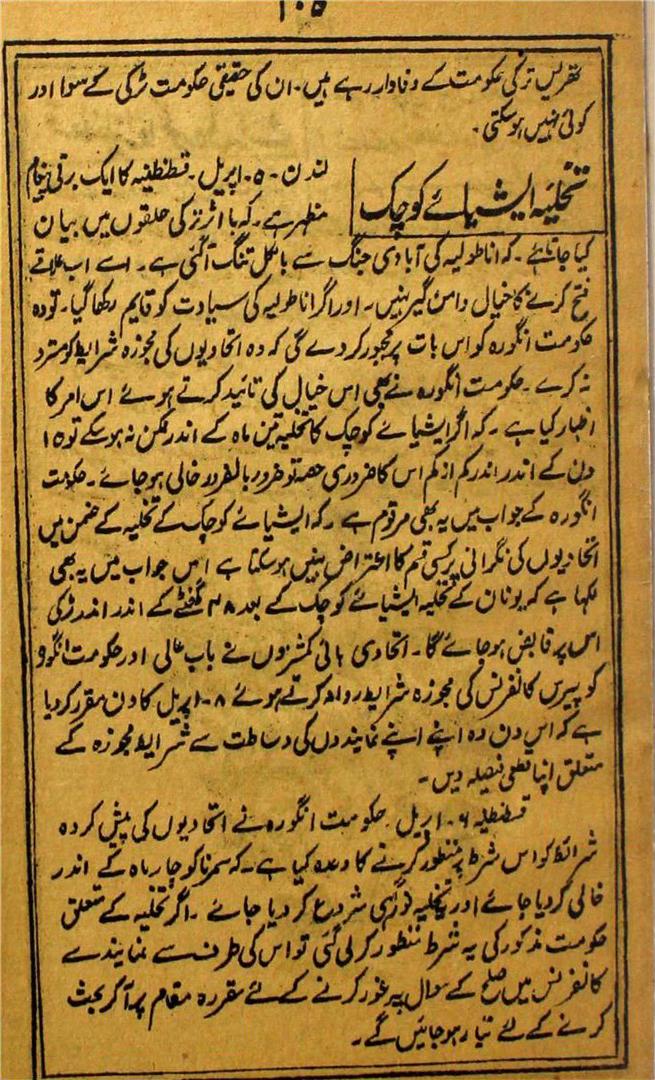 ۱۰۵
تھریس ترکی حکومت کے وفادار رہے ہیں۔ ان کی حقیقی حکومت ٹرکی کے سوا اور
کوئی نہیں ہوسکتی۔
تخلیہ ایشیائے کوچک
لندن۔ ۵۔ اپریل۔ قسطنطنیہ کا ایک برقی پیغام
مظہر ہے۔ کہ با اثر ترکی حلقوں میں بیان
کیا جاتا ہے۔ کہ اناطولیہ کی آبادی جنگ سے بالکل تنگ آگئی ہے۔ اسے اب علاقے
فتح کرنے کا خیال دامن گیر نہیں۔ اور اگر اناطولیہ کی سیادت کو قایم رکھا گیا۔ تو وہ
حکومت انگورہ کو اس بات پر مجبور کر دے گی کہ وہ اتحادیوں کی مجوزہ شرایط کو مسترد
نہ کرے۔ حکومت انگورہ نے بھی اس خیال کی تائید کرتے ہوئے اس امر کا
اظہار کیا ہے۔ کہ اگر ایشیائے کوچک کا تخلیہ تین ماہ کے اندر ممکن نہ ہوسکے تو ۱۵
دن کے اندر اندر کم از کم اس کا ضروری حصہ تو ضرور بالضرور خالی ہوجائے۔ حکومت
انگورہ کے جواب میں یہ بھی مرقوم ہے۔ کہ ایشیائے کوچک کے تخلیہ کے ضمن میں
اتحادیوں کی نگرانی پر کسی قسم کا اعتراض نہیں ہوسکتا ہے اس جواب میں یہ بھی
لکہا ہے کہ یونان کے تخلیہ ایشیائے کوچک کے بعد ۴۸ گھنٹے کے اندر اندر ٹرکی
اس پر قابض ہوجائے گا۔ اتحادی ہائی کمشنروں نے باب عالی اور حکومت انگورہ
کو پیرس کانفرنس کی مجوزہ شرایط روانہ کرتے ہوئے ۸۔ اپریل کا دن مقرر کردیا
ہے کہ اس دن وہ اپنے اپنے نمایندوں کی وساطت سے شرایط مجوزہ کے
متعلق اپنا قطعی فیصلہ دیں۔
قسطنطنیہ ۶۔ اپریل۔ حکومت انگورہ نے اتحادیوں کی پیش کردہ
شرائط کو اس شرط پر منظور کرنے کا وعدہ کیا ہے۔ کہ سمرنا کو چار ماہ کے اندر
خالی کردیا جائے اور تخلیہ فوراً ہی شروع کر دیا جائے۔ اگر تخلیہ کے متعلق
حکومت مذکور کی یہ شرط منظور کرلی گئی تو اس کی طرف سے نمایندے
کانفرنس میں صلح کے سوال پر غور کرنے کے لئے مقررہ مقام پر آکر بحث
کرنے کے لئے تیار ہوجائیں گے۔